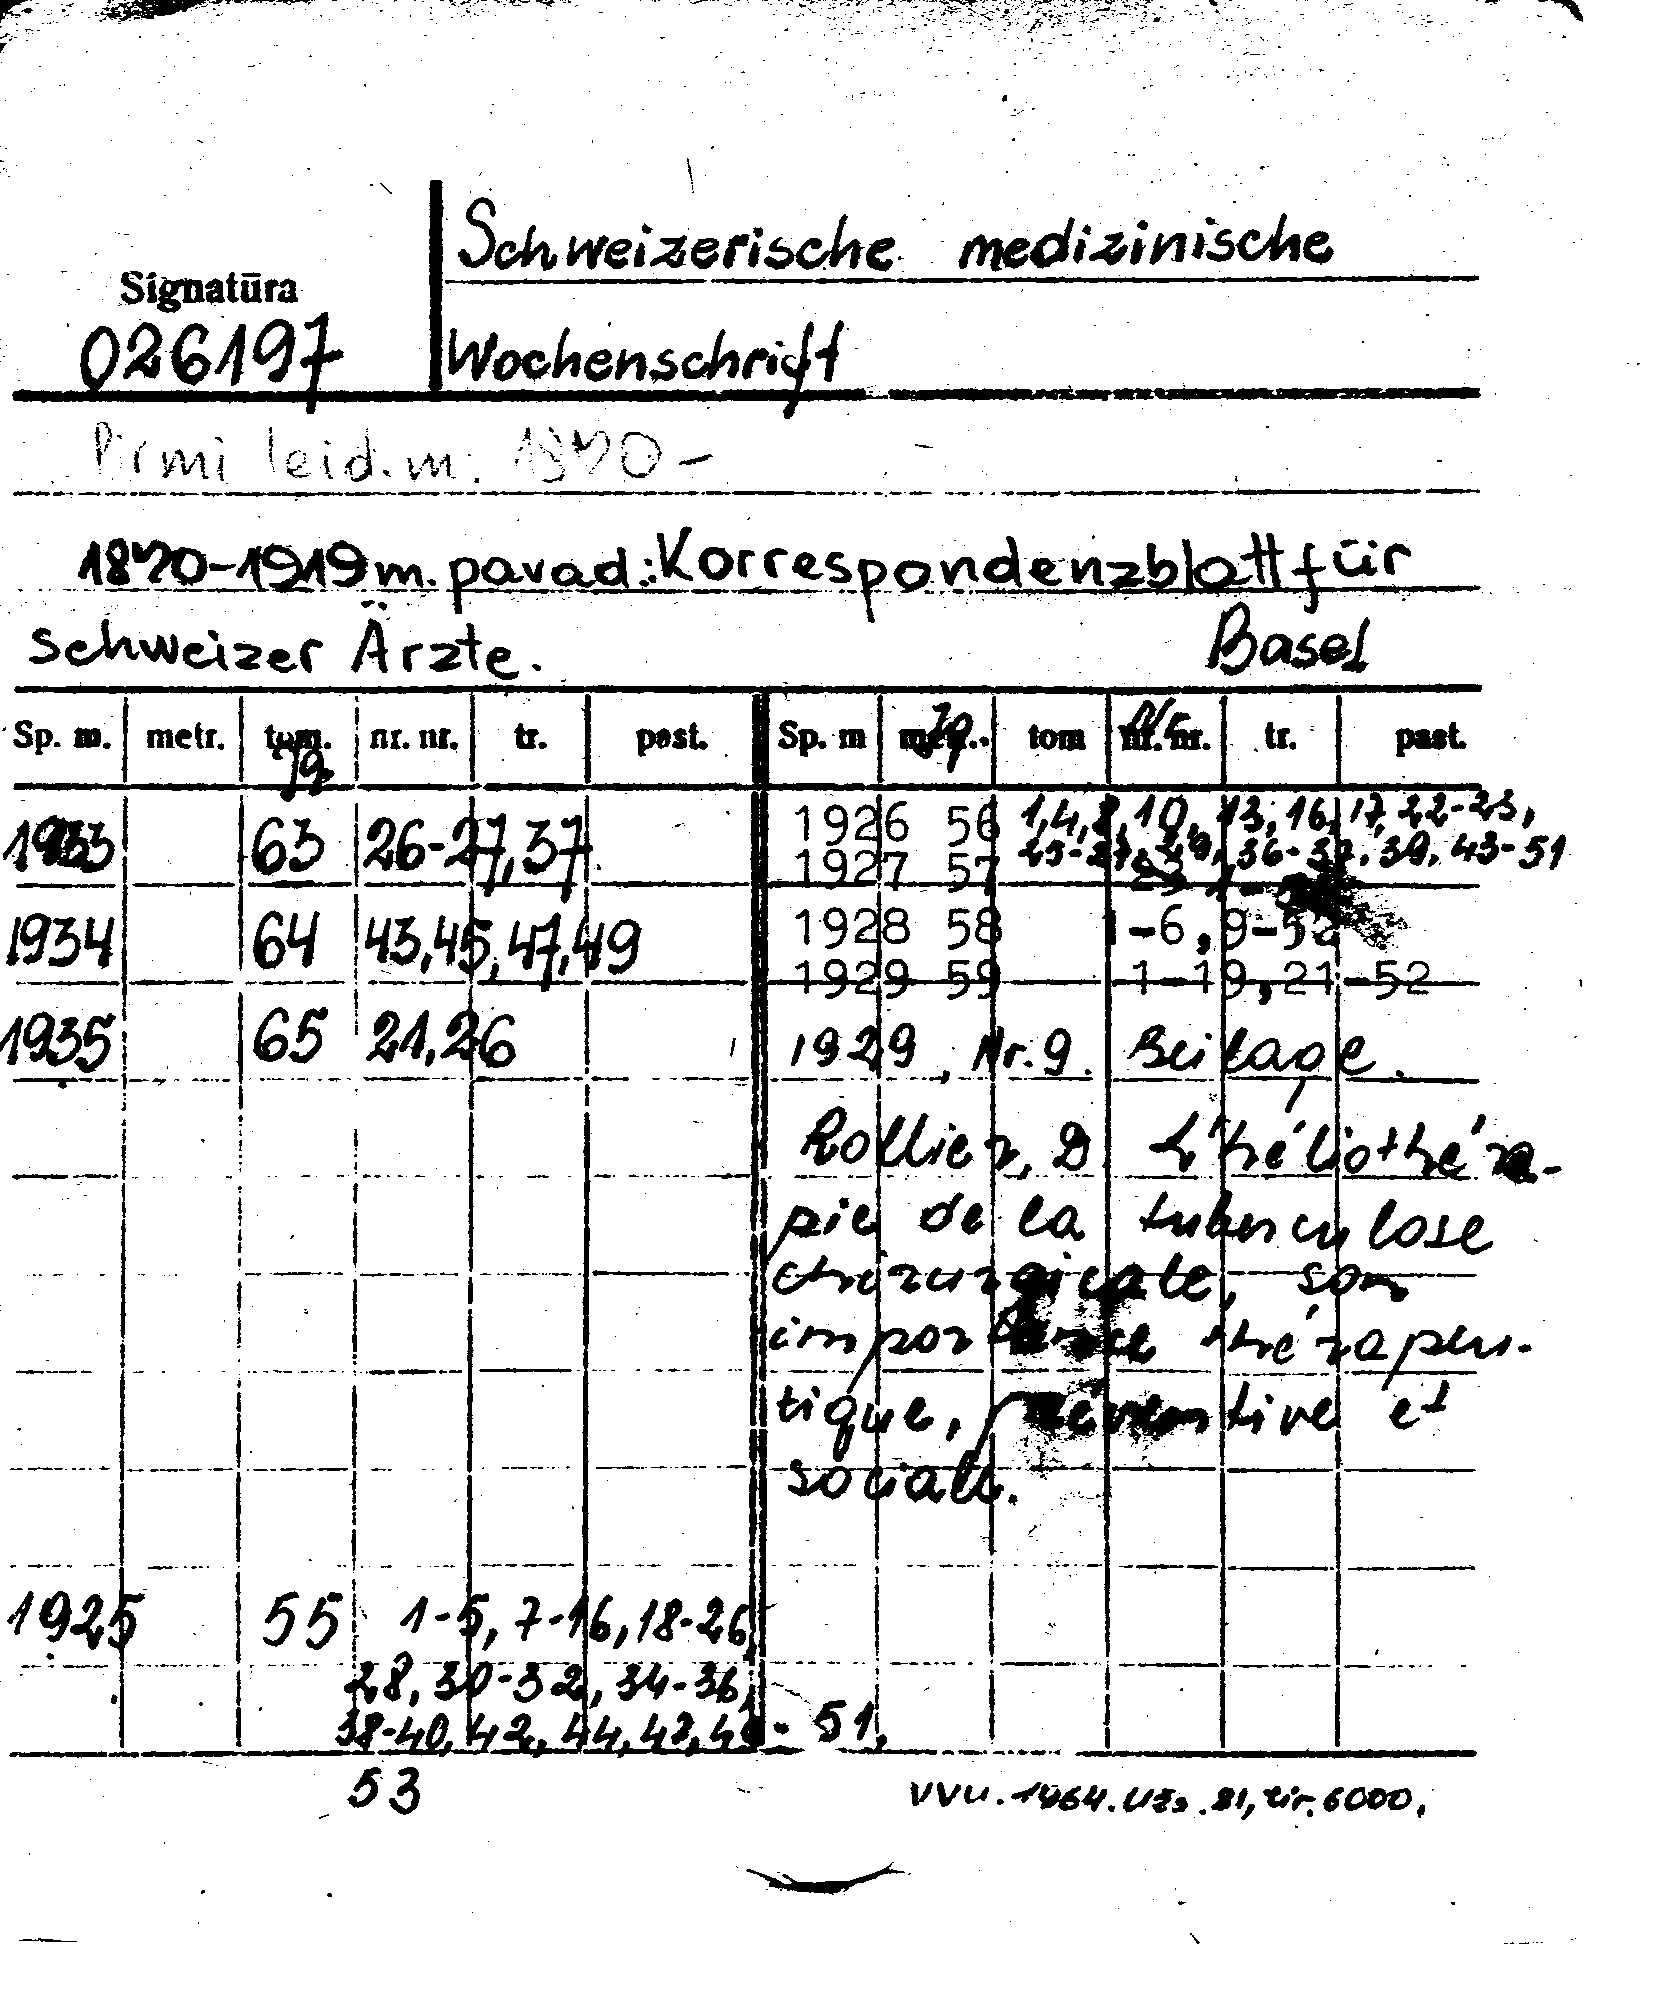 Schweizerische medizinische
Signatūra
026197
Wochenschrift
Pirmi leid. m. 1870 -
1870-1919 m. pavad.: Korrespondenzblatt für
schweizer Ärzte. Basel
Sp. m. metr. tom. nr. nr. tr. past. Sp. m metr. tom nr. nr. tr. past.
Jg. Jg. Nr.
1933 63 26-27, 37
1934 64 43, 45, 47, 49
1935 65 21, 26
1925 55 1-5, 7-16, 18-26,
28, 30-32, 34-36,
38-40, 42, 44, 47, 49 - 51,
53
1926 56 1, 4, 8, 10, 13, 16, 17, 22-23,
25-27, 29, 36-37, 39, 43-51
1927 57
1928 58 1-6, 9-52
1929 59 1-19, 21-52
1929, Nr. 9. Beilage.
Rollier, D. L'héliothéra-
pie de la tuberculose
chirurgicale, son
importance thérapeu-
tique, préventive et
sociale.
VVU. 1964. Užs. 81, tir. 6000.